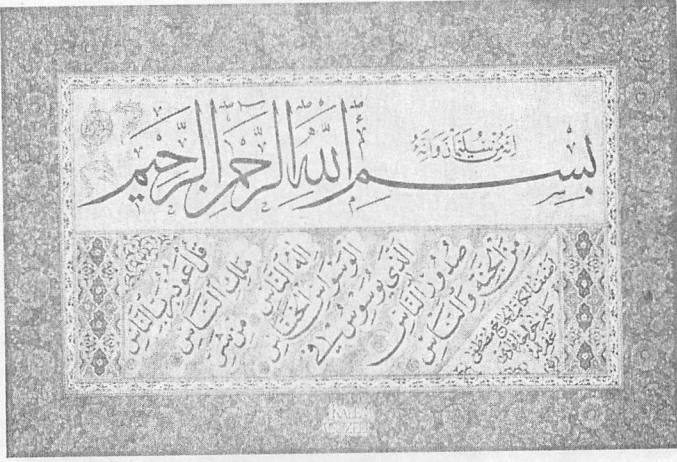 إنه من سليمان وإنه
بسم الله الرحمن الرحيم
قل اعوذ برب الناس
ملك الناس
اله الناس
من شر
الوسواس الخناس
الذي يوسوس في
صدور الناس
من الجنة والناس